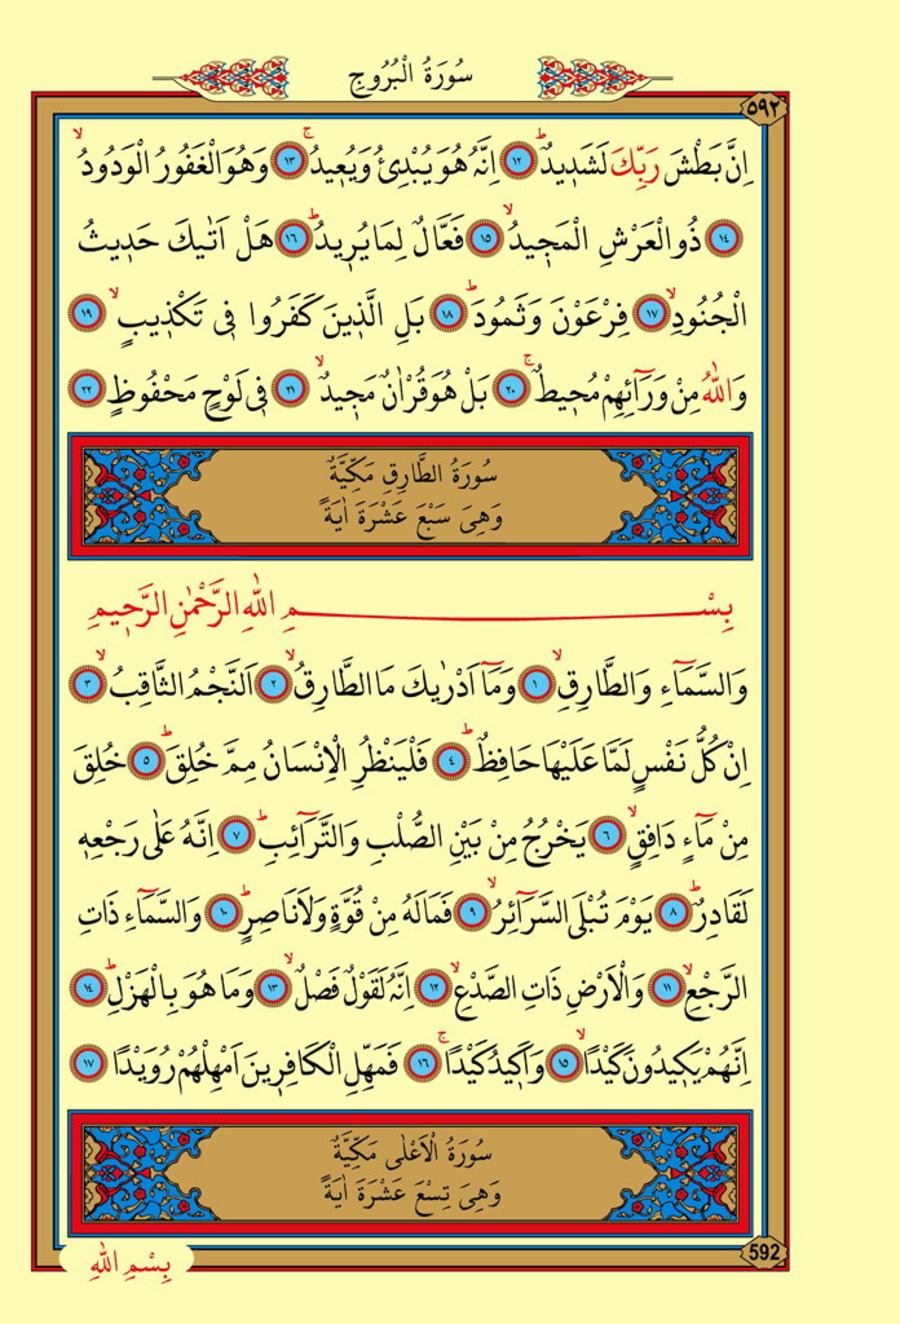 سُورَةُ الْبُرُوجِ
٥٩٢
اِنَّ بَطْشَ رَبِّكَ لَشَدٖيدٌ ﴿١٢﴾ اِنَّهُ هُوَ يُبْدِئُ وَيُعٖيدُ ﴿١٣﴾ وَهُوَ الْغَفُورُ الْوَدُودُ
﴿١٤﴾ ذُو الْعَرْشِ الْمَجٖيدُ ﴿١٥﴾ فَعَّالٌ لِمَا يُرٖيدُ ﴿١٦﴾ هَلْ اَتٰيكَ حَدٖيثُ
الْجُنُودِ ﴿١٧﴾ فِرْعَوْنَ وَثَمُودَ ﴿١٨﴾ بَلِ الَّذٖينَ كَفَرُوا فٖى تَكْذٖيبٍ ﴿١٩﴾
وَاللّٰهُ مِنْ وَرَٓائِهِمْ مُحٖيطٌ ﴿٢٠﴾ بَلْ هُوَ قُرْاٰنٌ مَجٖيدٌ ﴿٢١﴾ فٖى لَوْحٍ مَحْفُوظٍ ﴿٢٢﴾
سُورَةُ الطَّارِقِ مَكِّيَّةٌ
وَهِىَ سَبْعَ عَشْرَةَ اٰيَةً
بِسْمِ اللّٰهِ الرَّحْمٰنِ الرَّحٖيمِ
وَالسَّمَٓاءِ وَالطَّارِقِ ﴿١﴾ وَمَٓا اَدْرٰيكَ مَا الطَّارِقُ ﴿٢﴾ اَلنَّجْمُ الثَّاقِبُ ﴿٣﴾
اِنْ كُلُّ نَفْسٍ لَمَّا عَلَيْهَا حَافِظٌ ﴿٤﴾ فَلْيَنْظُرِ الْاِنْسَانُ مِمَّ خُلِقَ ﴿٥﴾ خُلِقَ
مِنْ مَٓاءٍ دَافِقٍ ﴿٦﴾ يَخْرُجُ مِنْ بَيْنِ الصُّلْبِ وَالتَّرَٓائِبِ ﴿٧﴾ اِنَّهُ عَلٰى رَجْعِهٖ
لَقَادِرٌ ﴿٨﴾ يَوْمَ تُبْلَى السَّرَٓائِرُ ﴿٩﴾ فَمَا لَهُ مِنْ قُوَّةٍ وَلَا نَاصِرٍ ﴿١٠﴾ وَالسَّمَٓاءِ ذَاتِ
الرَّجْعِ ﴿١١﴾ وَالْاَرْضِ ذَاتِ الصَّدْعِ ﴿١٢﴾ اِنَّهُ لَقَوْلٌ فَصْلٌ ﴿١٣﴾ وَمَا هُوَ بِالْهَزْلِ ﴿١٤﴾
اِنَّهُمْ يَكٖيدُونَ كَيْدًا ﴿١٥﴾ وَاَكٖيدُ كَيْدًا ﴿١٦﴾ فَمَهِّلِ الْكَافِرٖينَ اَمْهِلْهُمْ رُوَيْدًا ﴿١٧﴾
سُورَةُ الْاَعْلٰى مَكِّيَّةٌ
وَهِىَ تِسْعَ عَشْرَةَ اٰيَةً
592
بِسْمِ اللّٰهِ